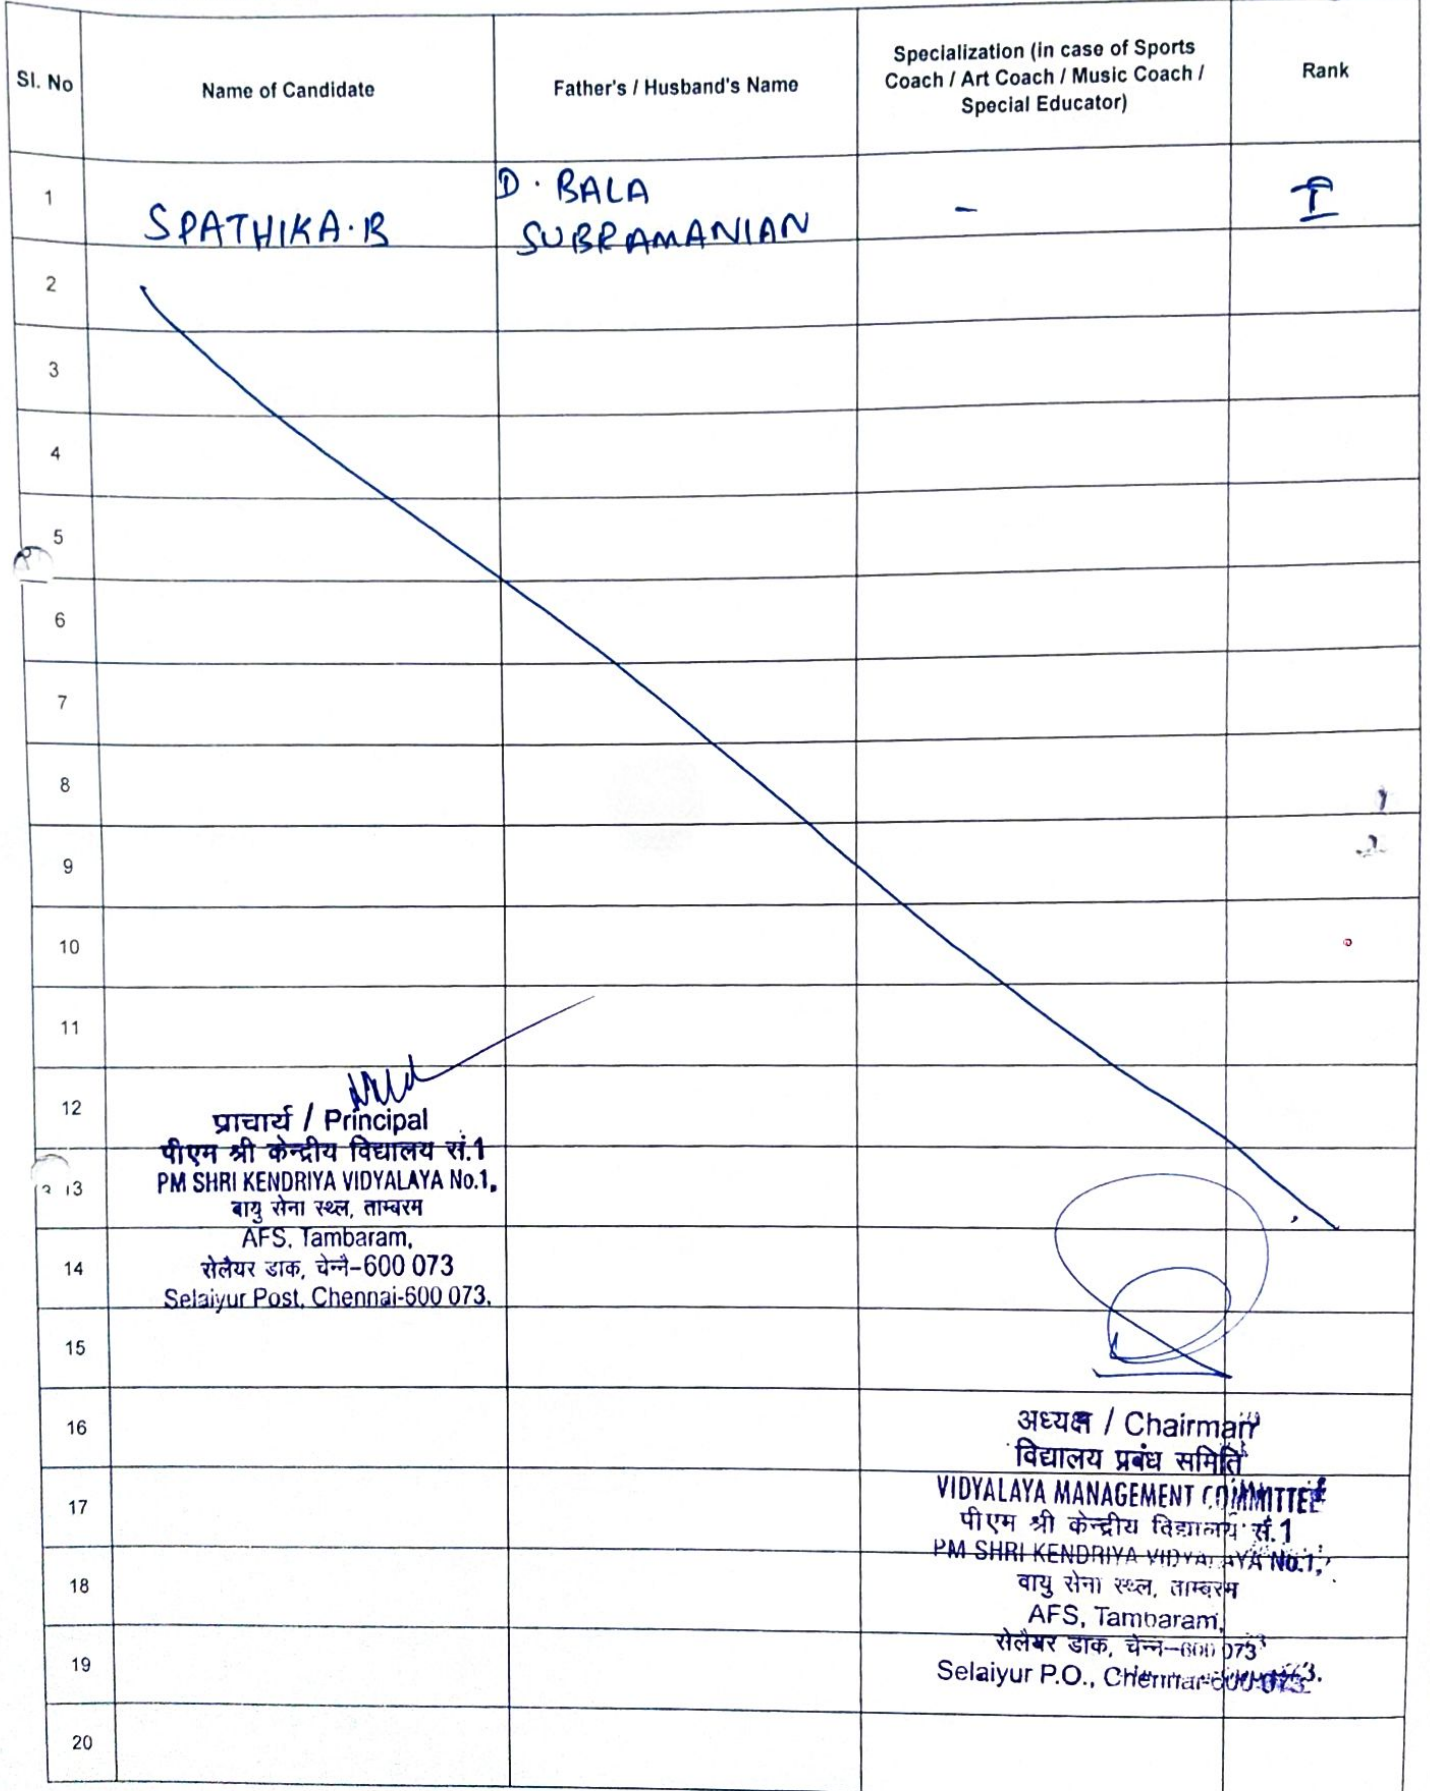 Sl. No
Name of Candidate
Father's / Husband's Name
Specialization (in case of Sports
Coach / Art Coach / Music Coach /
Special Educator)
Rank
1
SPATHIKA.B
D. BALA
SUBRAMANIAN
-
I
2
3
4
5
6
7
8
9
10
11
12
13
14
15
16
17
18
19
20
प्राचार्य / Principal
पीएम श्री केन्द्रीय विद्यालय सं.1
PM SHRI KENDRIYA VIDYALAYA No.1,
वायु सेना स्थल, ताम्बरम
AFS, Tambaram,
सेलैयर डाक, चेन्नै-600 073
Selaiyur Post, Chennai-600 073.
अध्यक्ष / Chairman
विद्यालय प्रबंध समिति
VIDYALAYA MANAGEMENT COMMITTEE
पीएम श्री केन्द्रीय विद्यालय सं.1
PM SHRI KENDRIYA VIDYALAYA No.1,
वायु सेना स्थल, ताम्बरम
AFS, Tambaram,
सेलैयर डाक, चेन्नै-600 073
Selaiyur P.O., Chennai-600 073.